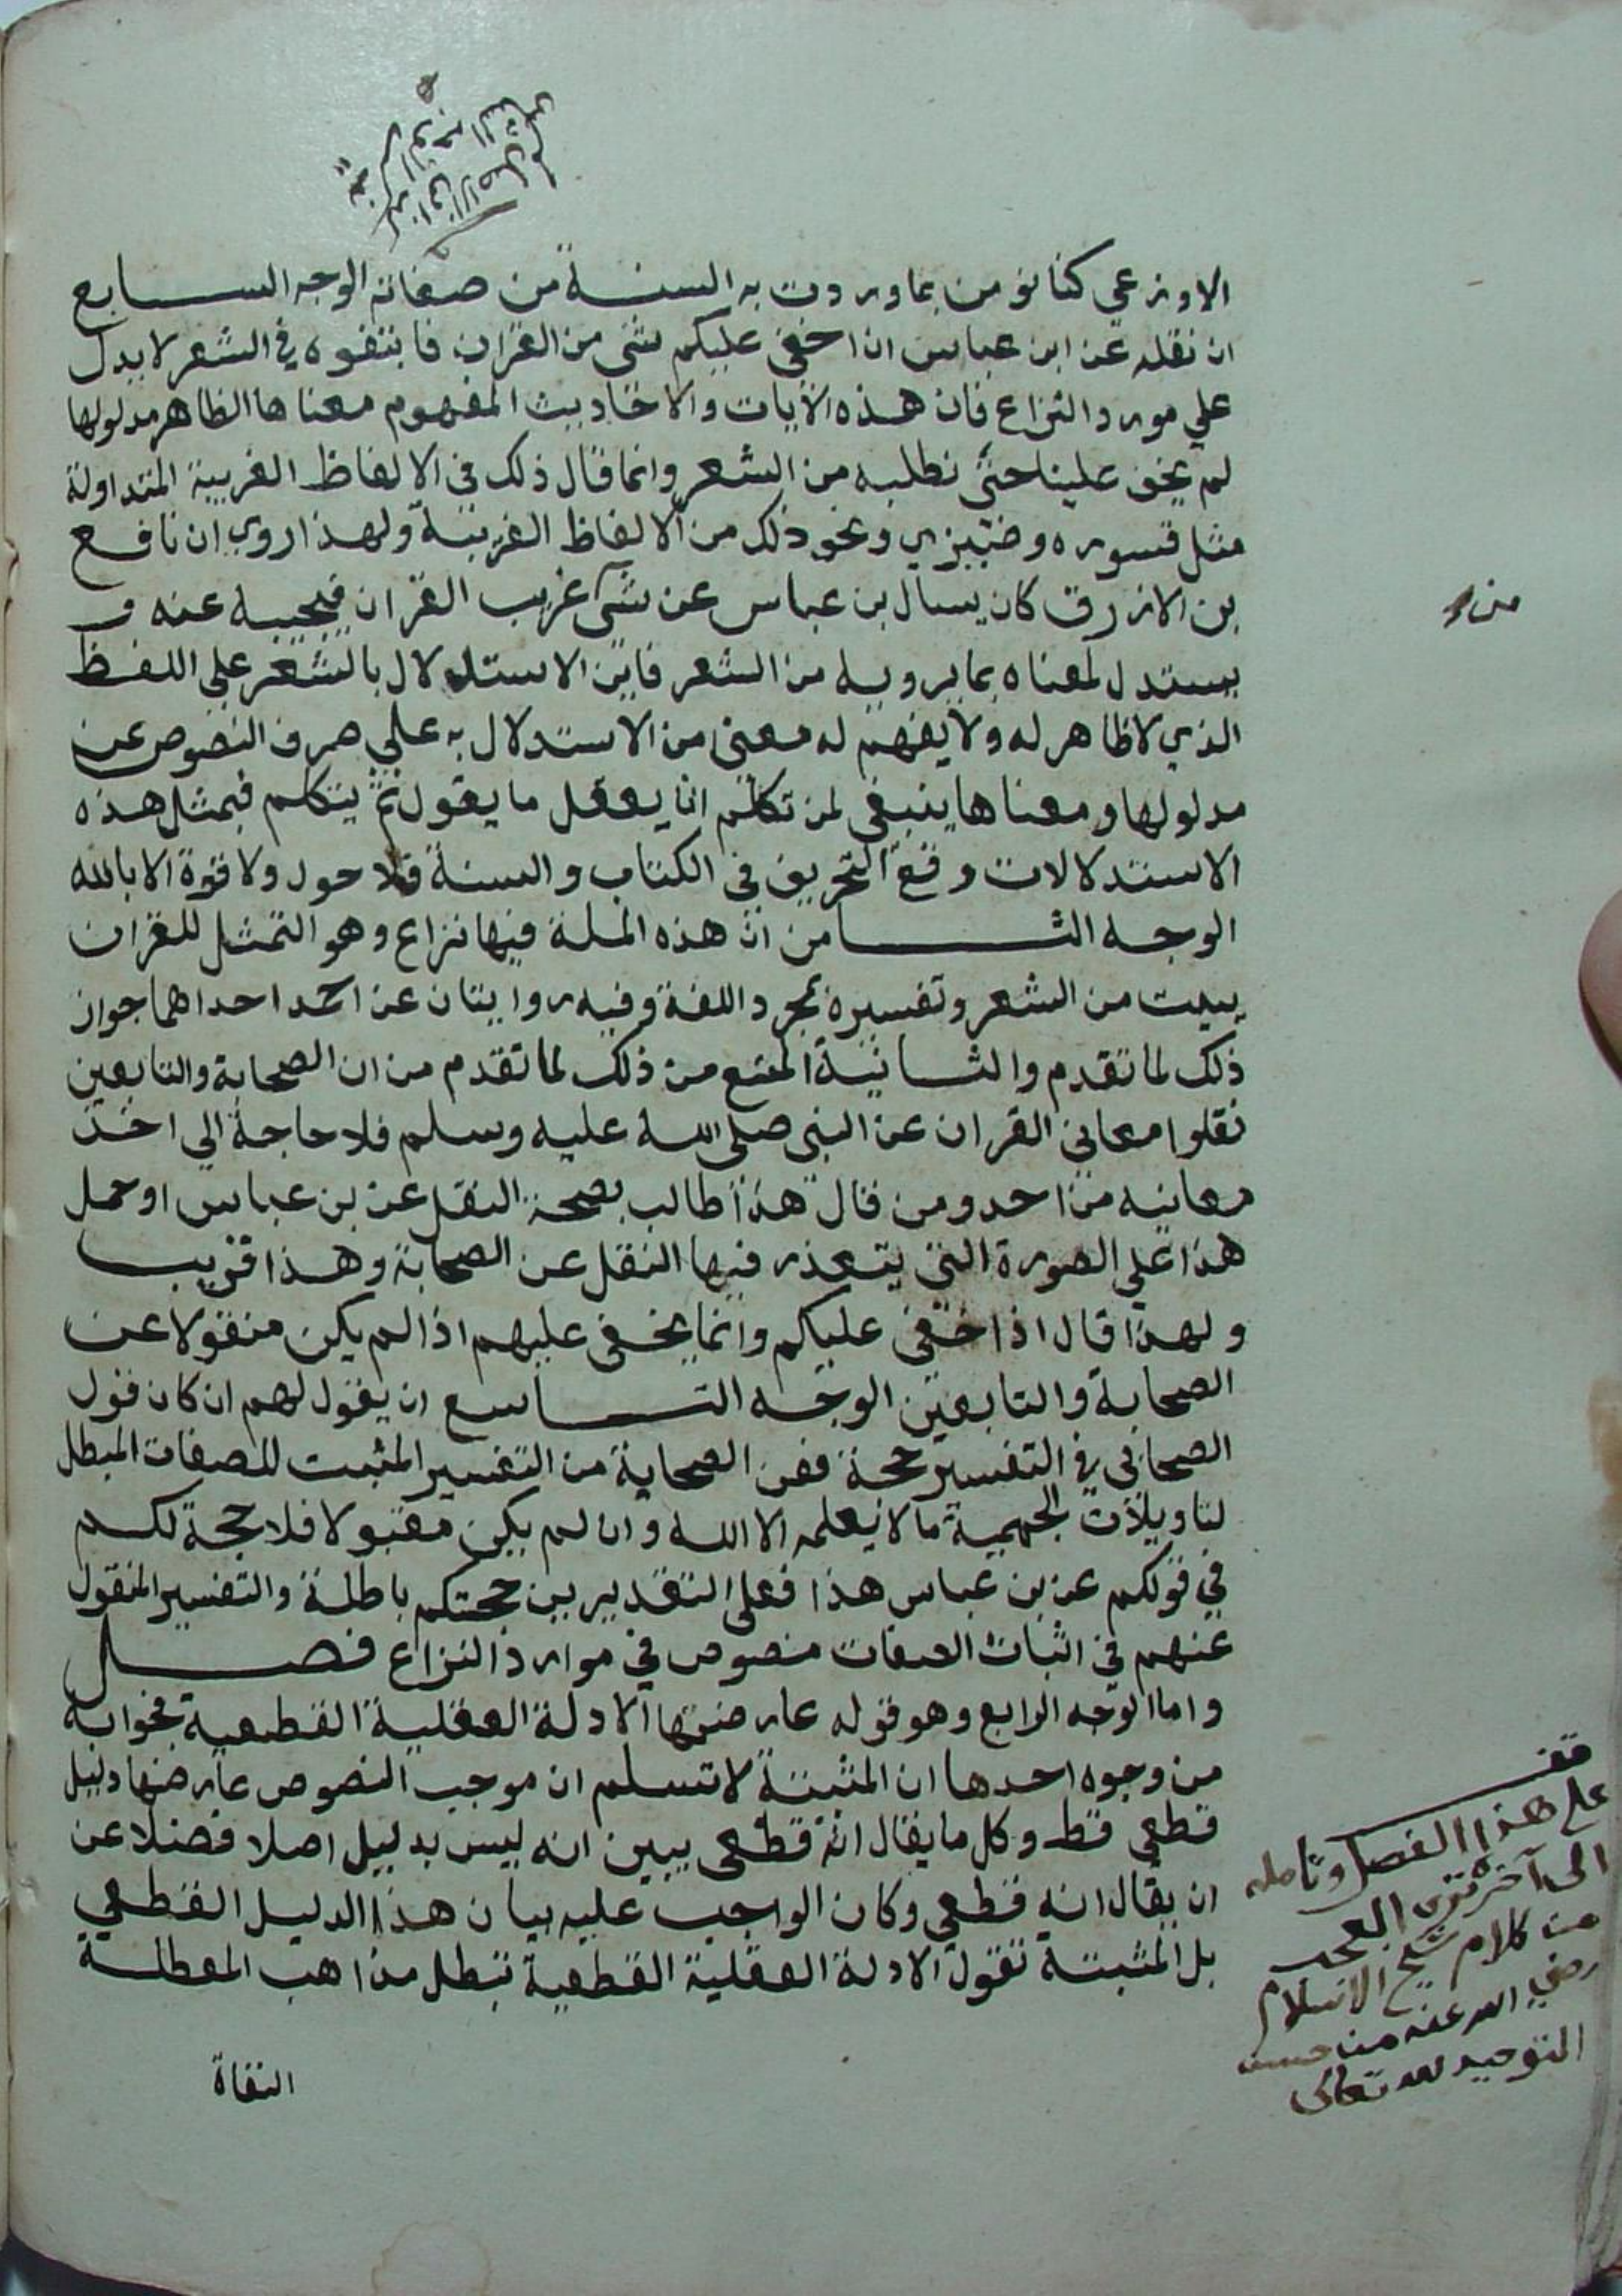 الاوزعي كنا نومن بما وردت به السنة من صفاته الوجه السابع
ان نقله عن ابن عباس اذا خفي عليكم شي من القران فابتغوه في الشعر لا يدل
علي مورد النزاع فان هذه الايات والاحاديث المفهوم معناها الظاهر مدلولها
لم يخف علينا حتى نطلبه من الشعر وانما قال ذلك في الالفاظ الغريبة المتداولة
مثل قسوره وضيزي ونحو ذلك من الالفاظ الغريبة ولهذا روي ان نافع
بن الازرق كان يسال بن عباس عن شى غريب القران فيجيبه عنه و
يستدل لمعناه بما يرويه من الشعر فاين الاستدلال بالشعر علي اللفظ
الذي لا ظاهر له ولا يفهم له معنى من الاستدلال به علي صرف النصوص عن
مدلولها ومعناها ينبغي لمن تكلم ان يعقل ما يقول ثم يتكلم فبمثل هذه
الاستدلالات وقع التحريف في الكتاب والسنة فلا حول ولا قوة الا بالله
الوجه الثامن ان هذه المسلة فيها نزاع وهو التمثل للقران
ببيت من الشعر وتفسيره بمجرد اللغة وفيه روايتان عن احمد احداهما جواز
ذلك لما تقدم والثانية المنع من ذلك لما تقدم من ان الصحابة والتابعين
نقلوا معاني القران عن النبي صلى الله عليه وسلم فلا حاجة الي اخذ
معانيه من احد ومن قال هذا طالب بصحة النقل عن بن عباس او حمل
هذا علي الصورة التي يتعذر فيها النقل عن الصحابة وهذا قريب
ولهذا قال اذا خفي عليكم وانما يخفى عليهم اذا لم يكن منقولا عن
الصحابة والتابعين الوجه التاسع ان يقول لهم ان كان قول
الصحابي في التفسير حجة فعن الصحابة من التفسير المثبت للصفات المبطل
لتاويلات الجهمية ما لا يعلمه الا الله وان لم يكن مقبولا فلا حجة لكم
في قولكم عن بن عباس هذا فعلى التقديرين حجتكم باطلة والتفسير المنقول
عنهم في اثبات الصفات منصوص في موارد النزاع فصل
واما الوجه الرابع وهو قوله عارضتها الادلة العقلية القطعية فجوابه
من وجوه احدها ان المثبتة لا تسلم ان موجب النصوص عارضها دليل
قطعي قط وكل ما يقال انه قطعى يبين انه ليس بدليل اصلا فضلا عن
ان يقال انه قطعي وكان الواجب عليه بيان هذا الدليل القطعي
بل المثبتة تقول الادلة العقلية القطعية تبطل مذاهب المعطلة
النفاة
من
قف
على هذا الفصل وتامله
الى اخره ترى العجب
من كلام شيخ الاسلام
رضي الله عنه من حسن
التوحيد لله تعالى